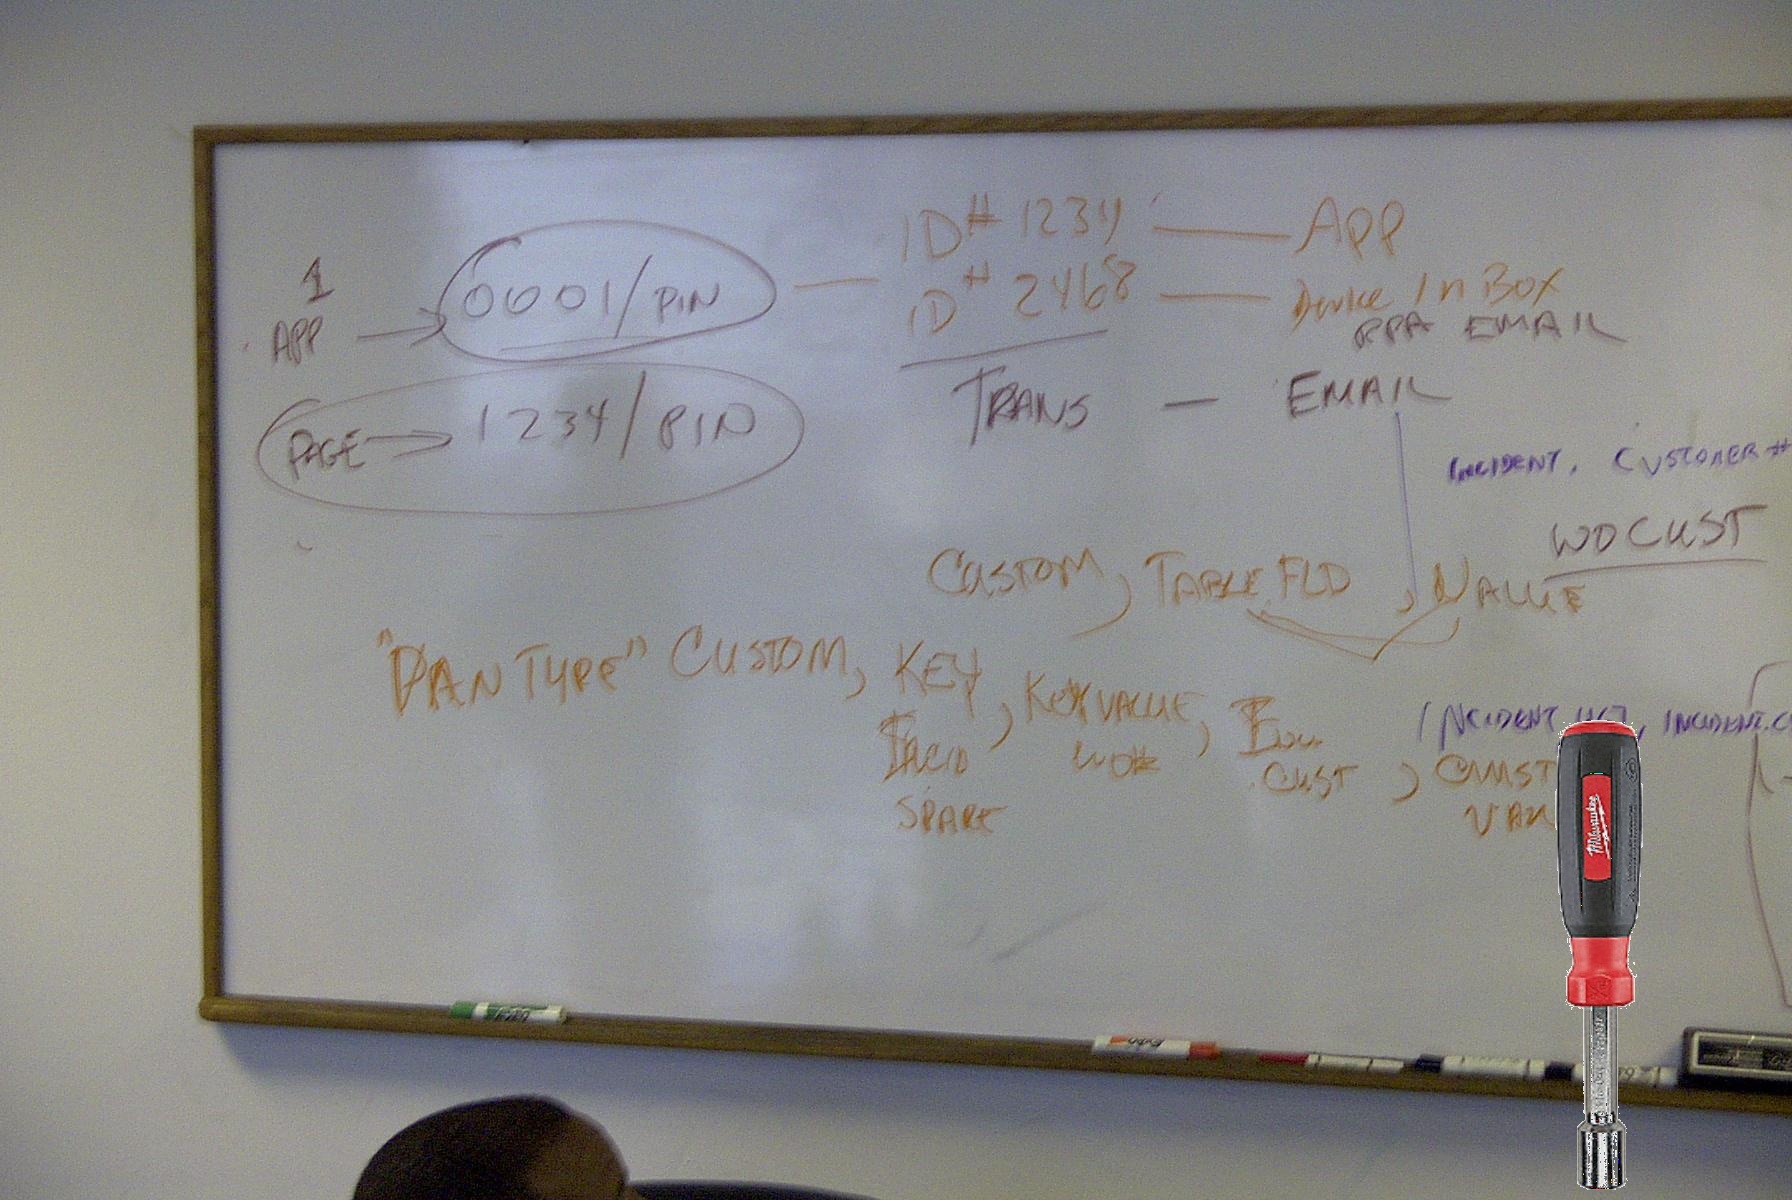 1
APP → 0001/PIN — ID# 1234 — APP
ID# 2468 — Device In Box
RPA EMAIL
PAGE → 1234/PIN
TRANS — EMAIL
INCIDENT, CUSTOMER #
WOCUST
CUSTOM, TABLE FLD, VALUE
"PAN TYPE" CUSTOM, KEY, KEY VALUE,
CUST, CUST
WO#
SPARE
VAN
INCIDENT, INCIDENT.
Milwaukee